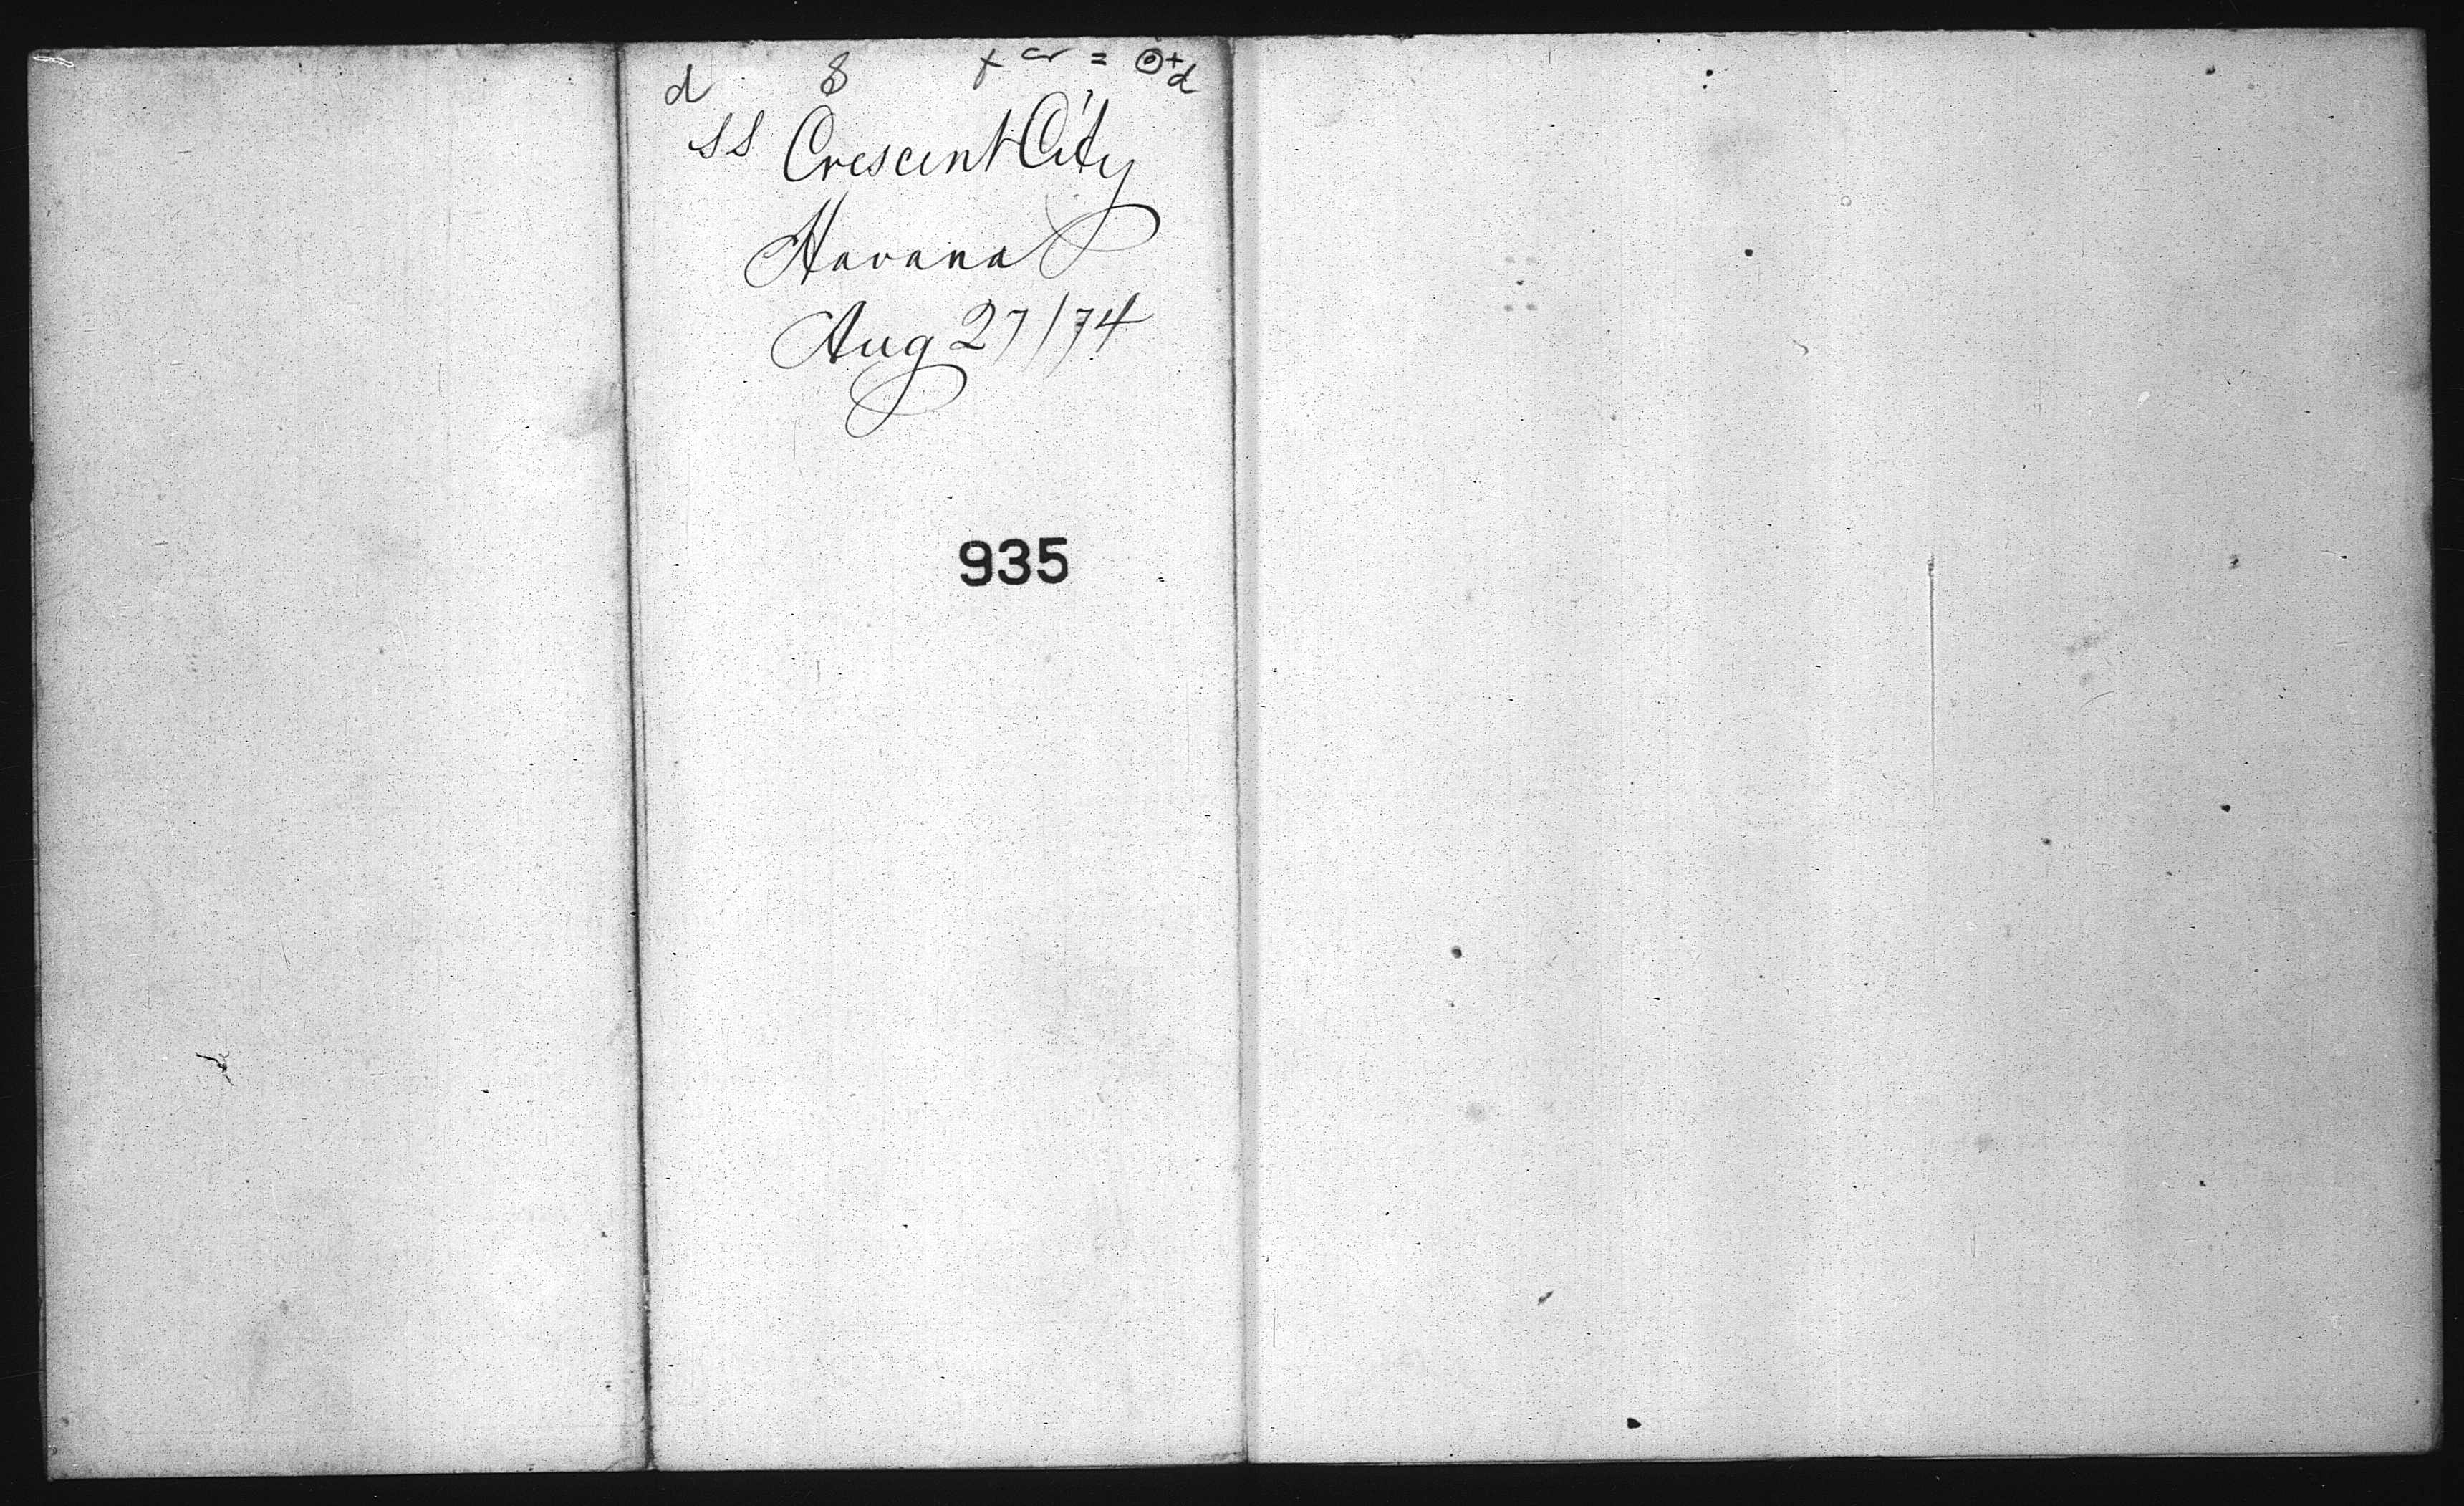 d 8 x cr = d
SS Crescent City
Havana
Aug 27/74
935